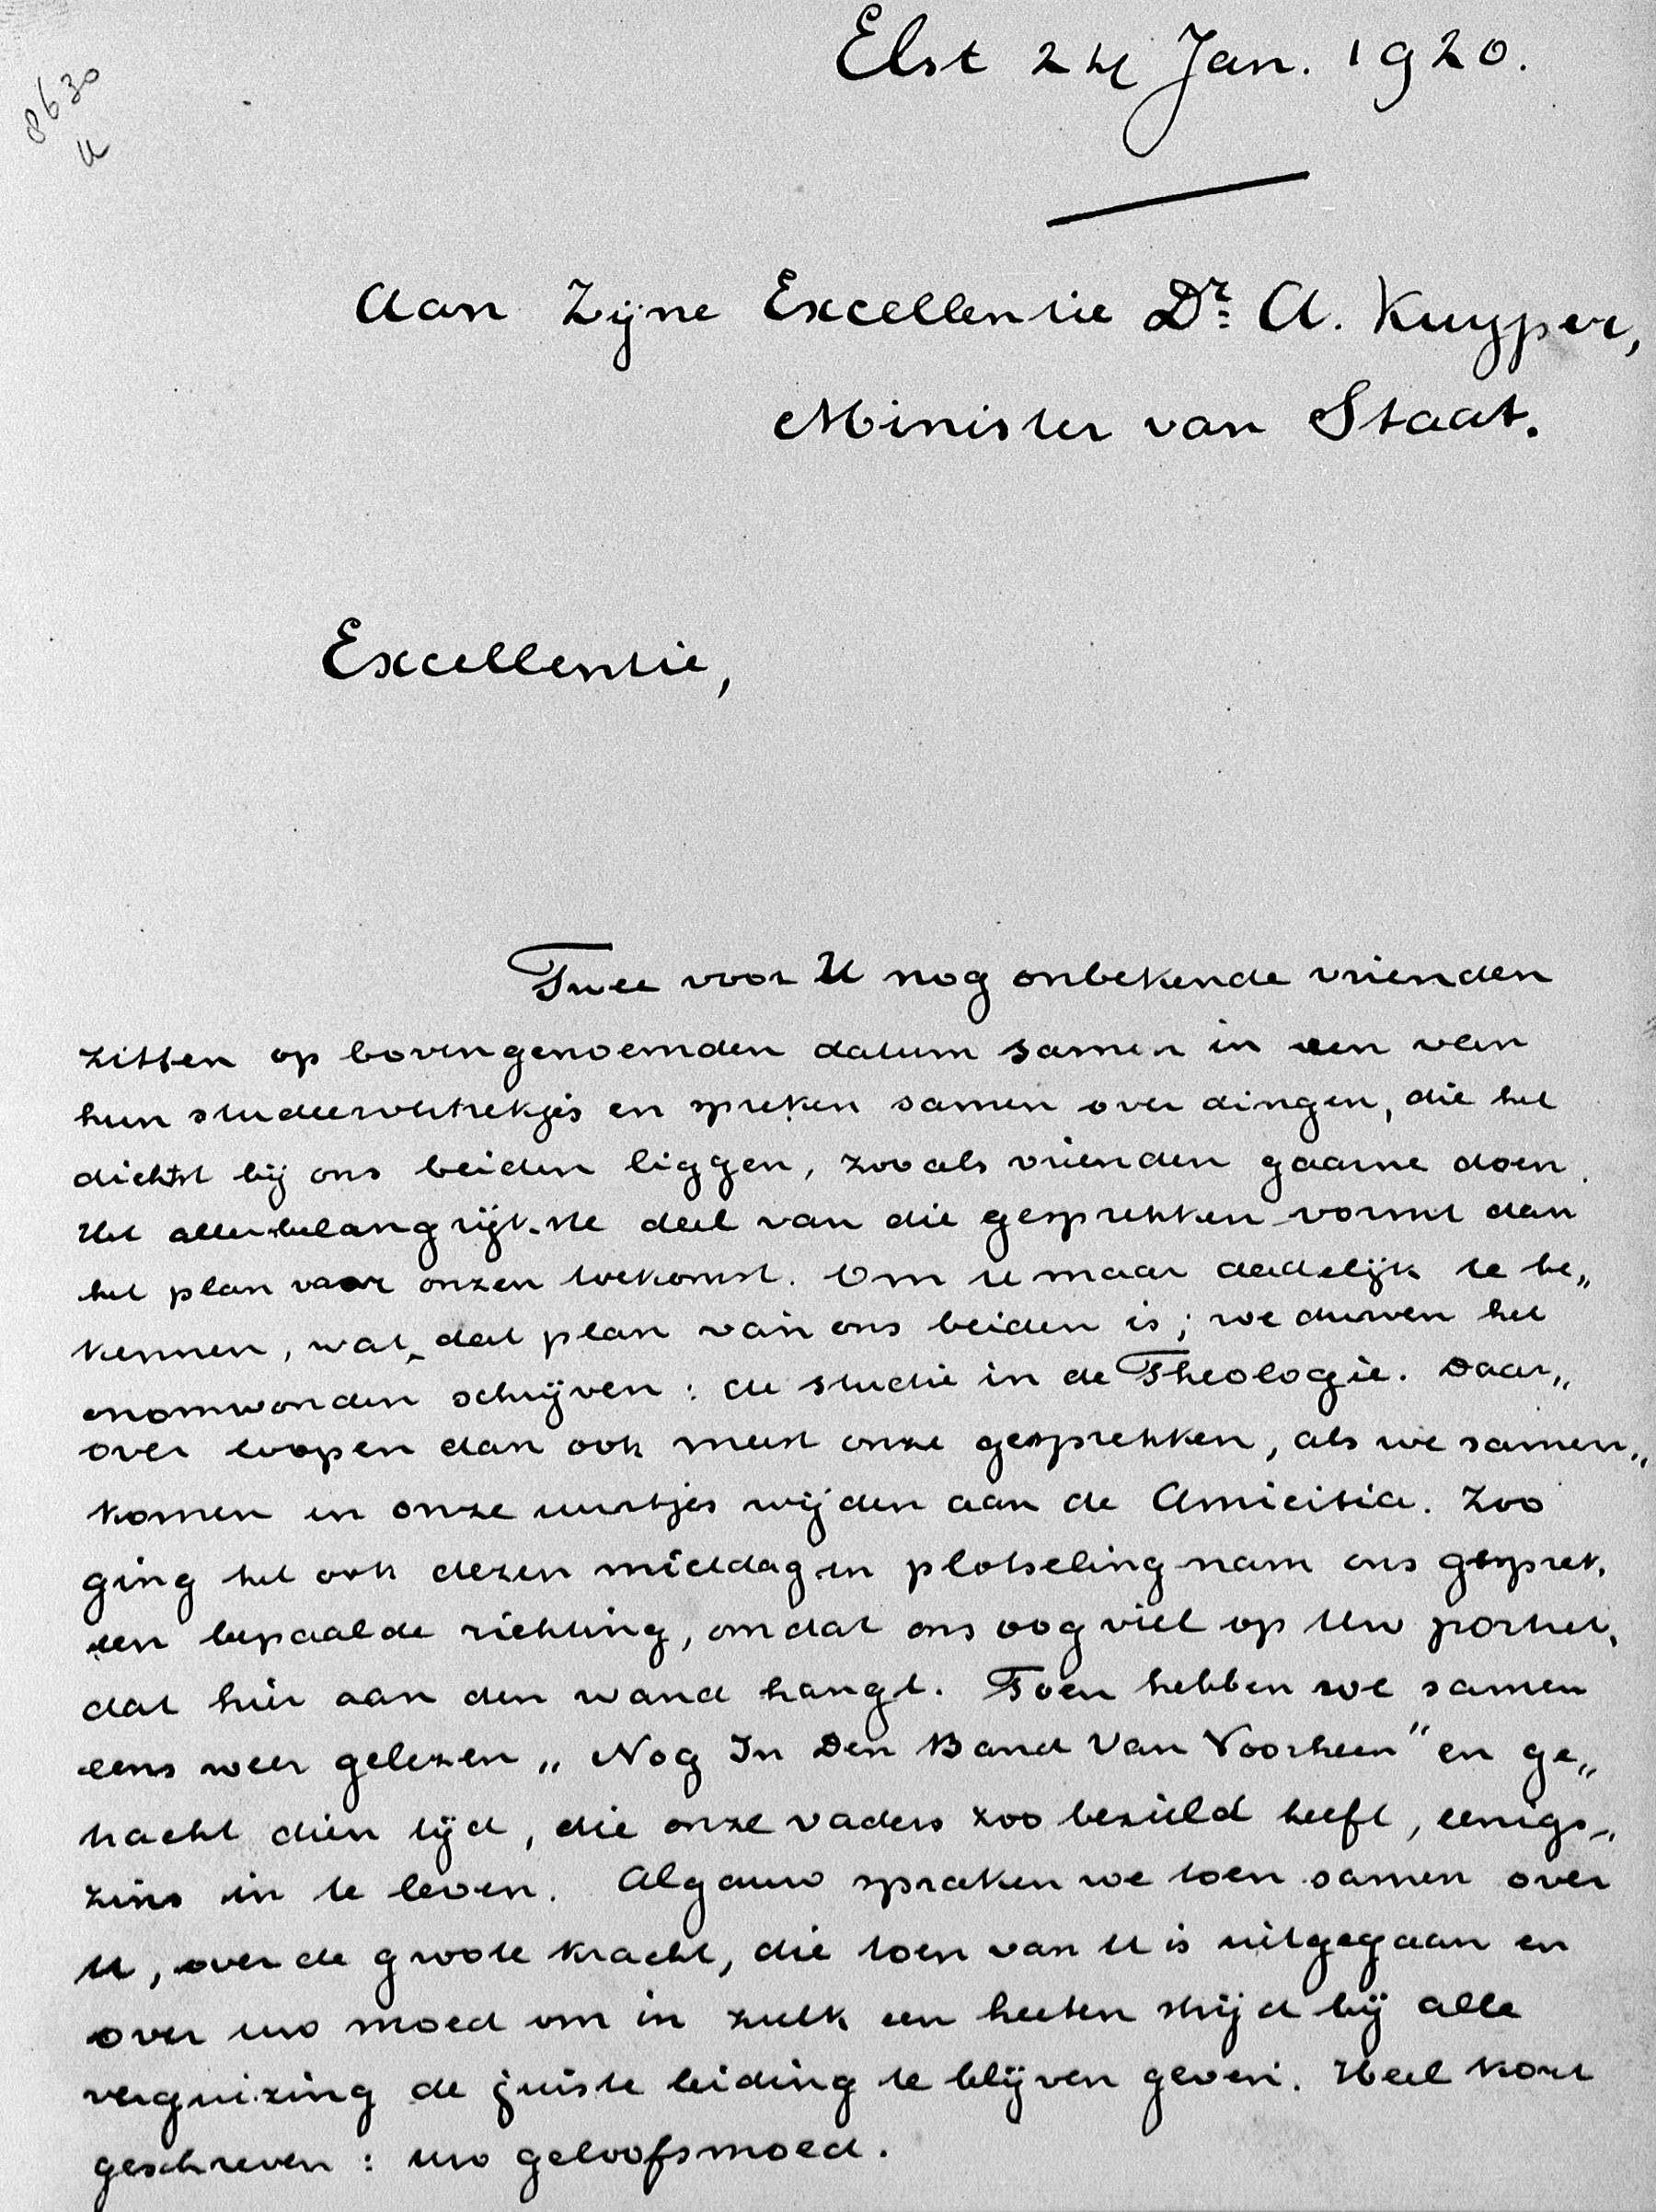 8630
U
Elst 24 Jan. 1920.
Aan Zijne Excellentie Dr. A. Kuyper,
Minister van Staat.
Excellentie,
Twee voor U nog onbekende vrienden
zitten op bovengenoemden datum samen in een van
hun studeervertrekjes en spreken samen over dingen, die het
dichtst bij ons beiden liggen, zooals vrienden gaarne doen.
Het allerbelangrijkste deel van die gesprekken vormt dan
het plan voor onzen toekomst. Om U maar dadelijk te be„
kennen, wat dat plan van ons beiden is; we durven het
onomwonden schrijven: de studie in de Theologie. Daar„
over loopen dan ook meest onze gesprekken, als we samen„
komen en onze uurtjes wijden aan de Amicitia. Zoo
ging het ook dezen middag en plotseling nam ons gesprek,
een bepaalde richting, omdat ons oog viel op Uw portret,
dat hier aan den wand hangt. Toen hebben we samen
eens weer gelezen „Nog In Den Band Van Voorheen" en ge„
tracht dien tijd, die onze vaders zoo bezield heeft, eenigs„
zins in te leven. Algauw spraken we toen samen over
U, over de groote kracht, die toen van U is uitgegaan en
over uw moed om in zulk een heeten strijd bij alle
verguizing de juiste leiding te blijven geven. Heel kort
geschreven: uw geloofsmoed.